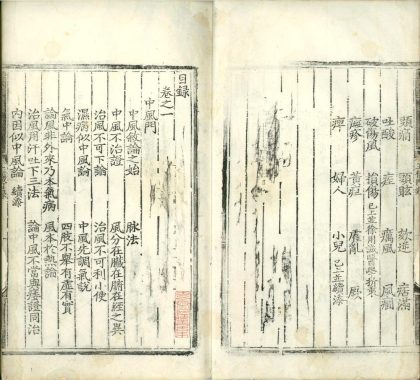 頭痛 頭眩 欬逆 痞滿
吐酸 痓 癘風 風癇
破傷風 損傷 已上並徐用誠醫學折衷
斑疹 黃疸 霍亂 厥
痺 婦人 小兒 已上並續添
目錄
卷之一
中風門
中風敘論之始 脉法
中風不治證 風分在臟在腑在經之異
治風不可下論 治風不可利小便
濕病似中風論 中風先調氣說
氣中論 四肢不舉有虛有實
論風非外來乃本氣病 風本於熱論
治風用汗吐下三法 論中風不當與痿證同治
內因似中風論 續添